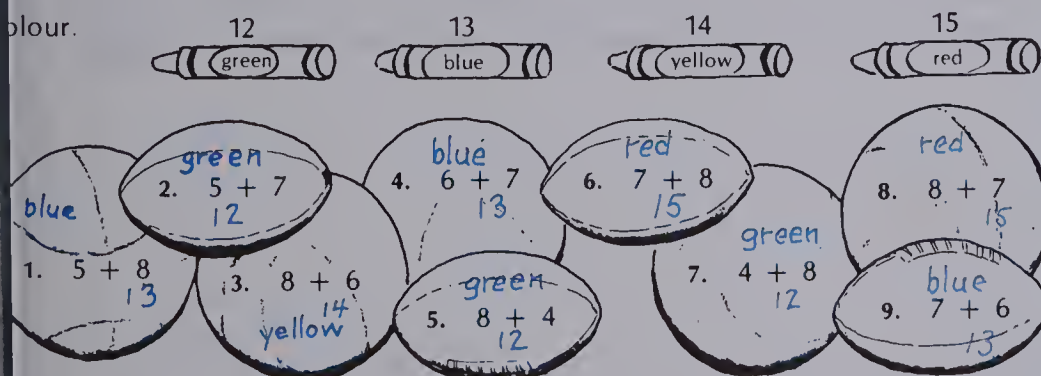 olour.
12 13 14 15
green blue yellow red
blue
1. 5 + 8
13
green
2. 5 + 7
12
3. 8 + 6
14
yellow
blue
4. 6 + 7
13
green
5. 8 + 4
12
red
6. 7 + 8
15
green
7. 4 + 8
12
red
8. 8 + 7
15
blue
9. 7 + 6
13